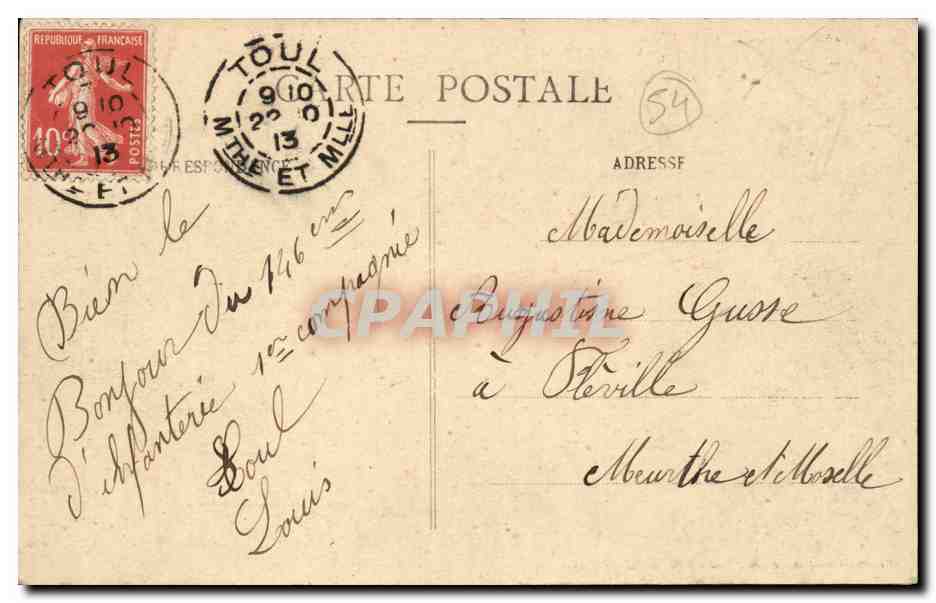 REPUBLIQUE FRANÇAISE
10c
POSTES
TOUL
9 10
13
ET
TOUL
9 10
13
MTHE ET MLLE
CARTE POSTALE
54
CORRESPONDENCE
ADRESSE
Bien le
Bonjour du 146 em
d'infanterie 1er compagnié
Toul
Louis
Mademoiselle
Augustine Gusse
à Fléville
Meurthe et Moselle
CPAPHIL